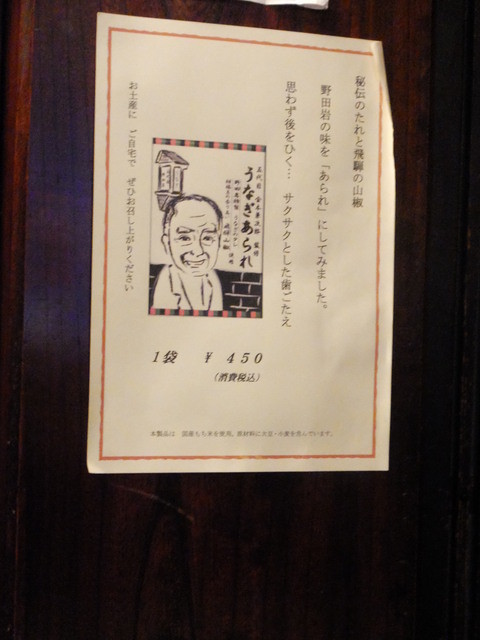 秘伝のたれと飛騨の山椒
野田岩の味を「あられ」にしてみました。
思わず後をひく… サクサクとした歯ごたえ
五代目 金本兼次郎 監修
うなぎあられ
飛騨山椒 使用
お土産に ご自宅で ぜひお召し上がりください
1袋 ¥450
(消費税込)
本製品は 国産もち米を使用。原材料に大豆・小麦を含んでいます。